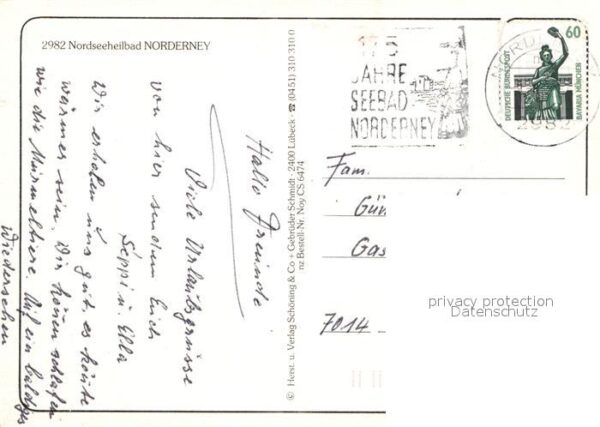 2982 Nordseeheilbad NORDERNEY
Hallo Freunde
Viele Urlaubsgrüsse
von hier senden Euch
Seppi u. Ella
Wir erholen uns gut, es könnte
wärmer sein. Wir können schlafen
wie die Murmeltiere. Auf ein baldiges
Wiedersehen
© Herst. u. Verlag Schöning & Co + Gebrüder Schmidt · 2400 Lübeck · ☎ (0451) 310 310 0
nz Bestell-Nr. Noy CS 6474
JAHRE
SEEBAD
NORDERNEY
2982
60
DEUTSCHE BUNDESPOST
BAVARIA MÜNCHEN
Fam.
Gün
Gas
7014
privacy protection
Datenschutz